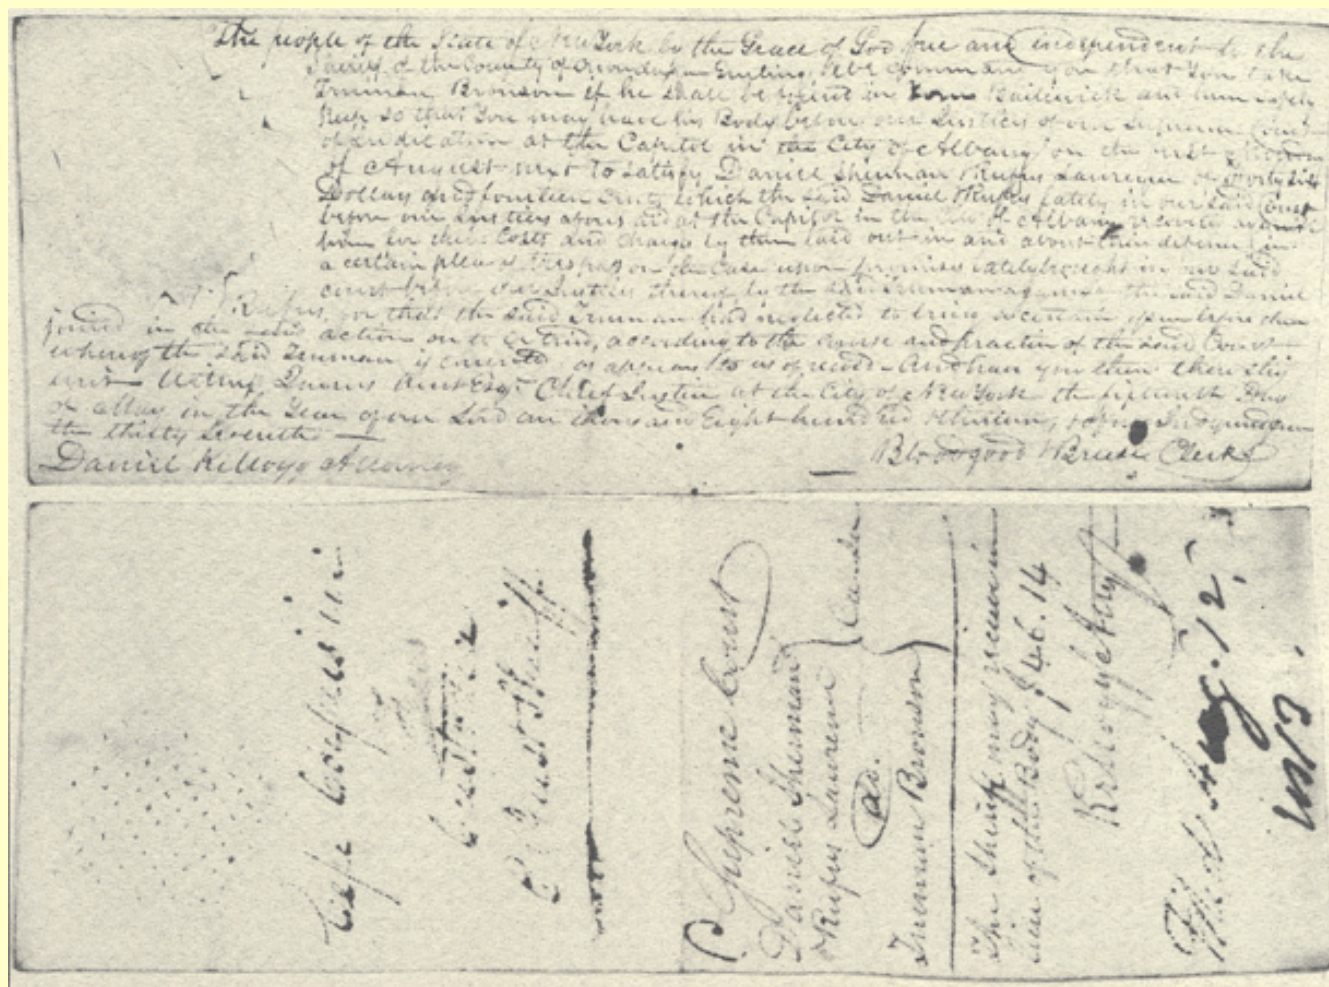 The people of the State of New York by the Grace of God free and independent to the
Sheriff of the County of Onondaga Greeting, We command you that you take
Truman Bronson if he shall be found in Your Bailiwick and him safely
Keep so that You may have his Body before our Justices of our Supreme Court
of Judicature at the Capitol in the City of Albany on the first Monday
of August next to satisfy Daniel Sherman & Rufus Laurence of Forty Six
Dollars and fourteen Cents which the said Daniel & Rufus lately in our said Court
before our Justices aforesaid at the Capitol in the City of Albany recovered against
him for their Costs and charges by them laid out in and about their defence in
a certain plea of trespass on the Case upon promises lately brought in our said
court before our Justices thereof by the said Truman against the said Daniel
& Rufus, for that the said Truman had neglected to bring a certain issue before them
joined in the said action on to be tried, according to the course and practice of the said Court
whereof the said Truman is convicted as appears to us of record - And have you then there this
writ Witness James Kent Esqr. Chief Justice at the City of New York the fifteenth Day
of May in the Year of our Lord one thousand Eight hundred & thirteen, & of our Independence
the thirty Seventh —
Daniel Kellogg Attorney
Bloodgood & Breese Clerks
Cepi Corpus
Fees
Sheriff
Supreme Court
Daniel Sherman
& Rufus Laurence
ad.
Truman Bronson
The Sheriff may receive in
lieu of the Body $46.14
Kellogg Atty
Filed Aug. 12,
1813.